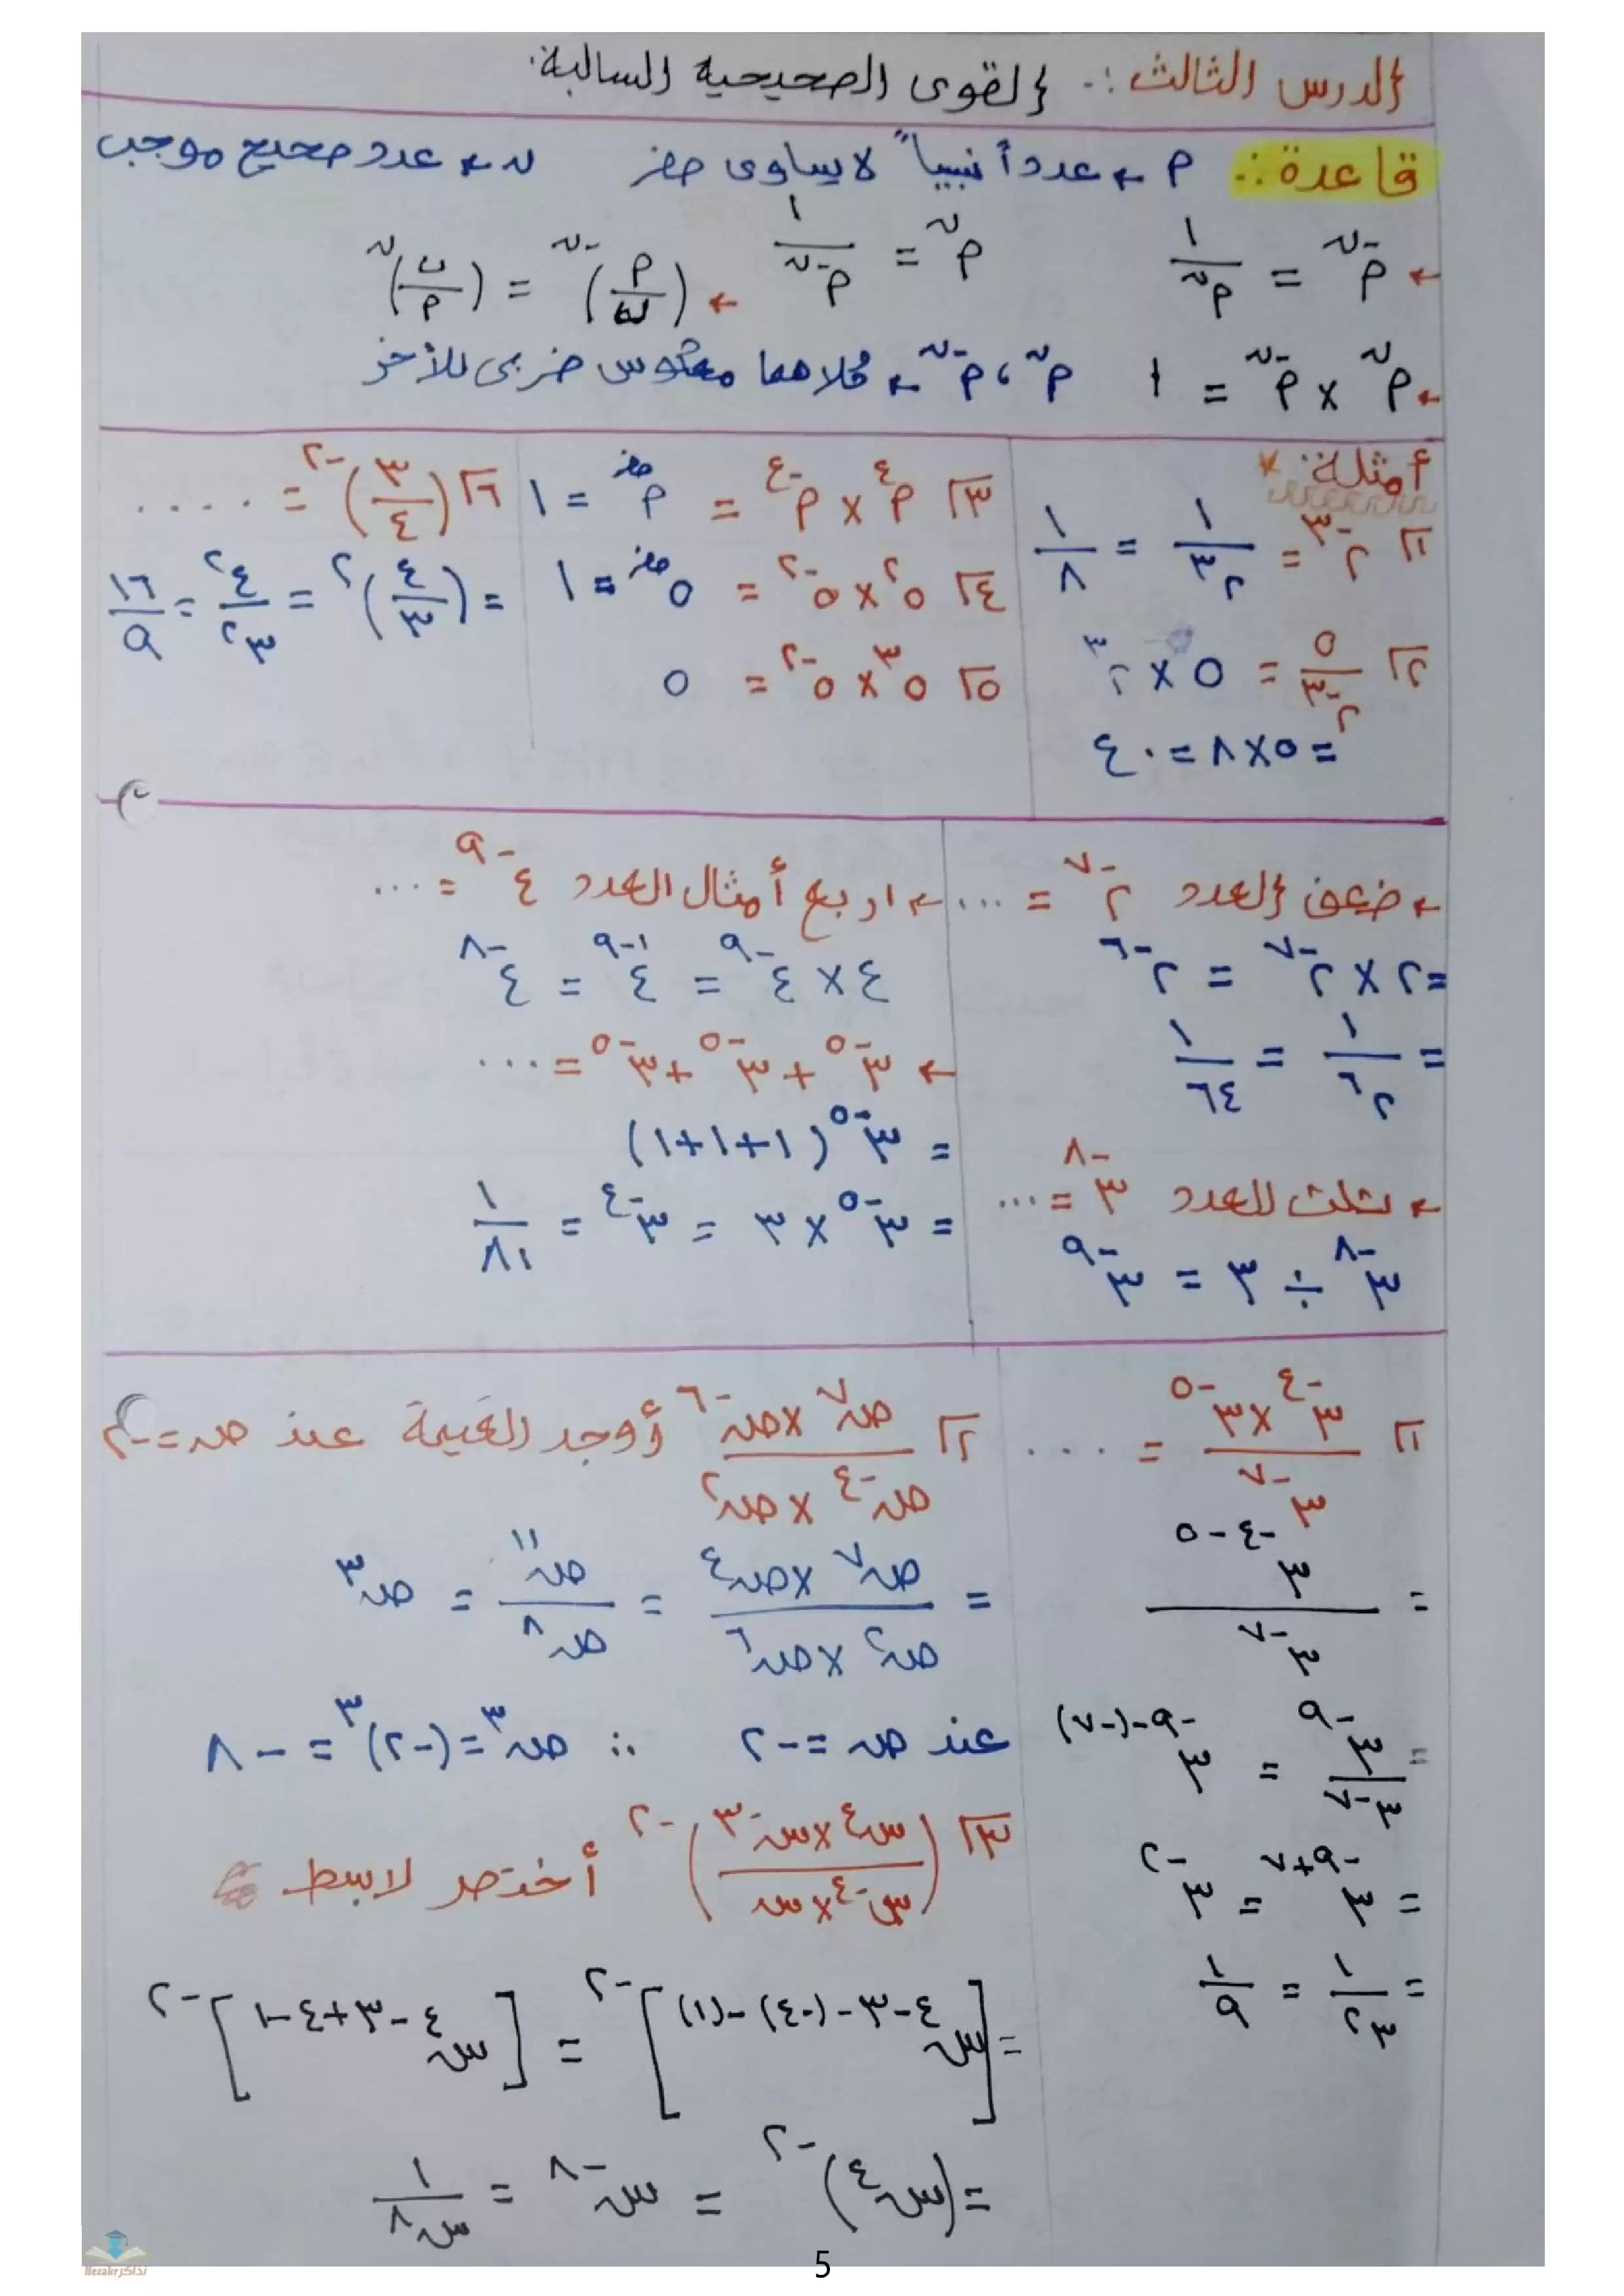 الدرس الثالث :- القوى الصحيحية السالبة.
قاعدة :- م ← عدداً نسبياً لا يساوى صفر ن ← عدد صحيح موجب
← م^-ن = ١/م^ن م^ن = ١/م^-ن ← (م/ب)^-ن = (ب/م)^ن
← م^ن × م^-ن = ١ م^ن ، م^-ن ← كلاهما معكوس ضربى للأخر
أمثلة:
١ ٢^-٣ = ١/٢^٣ = ١/٨
٢ ٥/٢^-٣ = ٥ × ٢^٣
= ٥ × ٨ = ٤٠
٣ م^٤ × م^-٤ = م^صفر = ١
٤ ٥^٢ × ٥^-٢ = ٥^صفر = ١
٥ ٥^٣ × ٥^-٢ = ٥
٦ (٣/٤)^-٢ = .....
= (٤/٣)^٢ = ٤^٢/٣^٢ = ١٦/٩
← ضعف العدد ٢^-٧ = ...
= ٢ × ٢^-٧ = ٢^-٦
= ١/٢^٦ = ١/٦٤
← ثلث العدد ٣^-٨ = ...
٣^-٨ ÷ ٣ = ٣^-٩
← اربع أمثال العدد ٤^-٩ = ...
٤ × ٤^-٩ = ٤^١-٩ = ٤^-٨
← ٣^-٥ + ٣^-٥ + ٣^-٥ = ...
= ٣^-٥ (١+١+١)
= ٣^-٥ × ٣ = ٣^-٤ = ١/٨١
١ ٣^-٤ × ٣^-٥ / ٣^-٧ = ....
= ٣^-٤-٥ / ٣^-٧
= ٣^-٩ / ٣^-٧ = ٣^-٩-(-٧)
= ٣^-٩+٧ = ٣^-٢
= ١/٣^٢ = ١/٩
٢ ص^٧ × ص^-٦ / ص^-٤ × ص^٢ أوجد القيمة عند ص = -٢
= ص^٧ × ص^٤ / ص^٢ × ص^٦ = ص^١١ / ص^٨ = ص^٣
عند ص = -٢ ∴ ص^٣ = (-٢)^٣ = -٨
٣ (س^٤ × س^-٣ / س^-٤ × س)^-٢ أختصر لابسط
= [س^٤-٣-(-٤)-(١)]^-٢ = [س^٤-٣+٤-١]^-٢
= (س^٤)^-٢ = س^-٨ = ١/س^٨
نذاكر
Nezakr
5